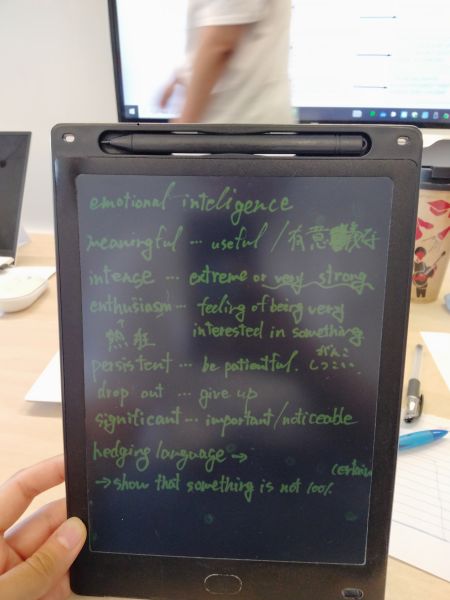 emotional inteligence
meaningful … useful / 有意義な
intense … extreme or very strong
enthusiasm … feeling of being very
熱狂 interested in something
がんこ
persistent … be patientful. しつこい
drop out … give up
significant … important/noticeable
hedging language →
certain
→ show that something is not 100%